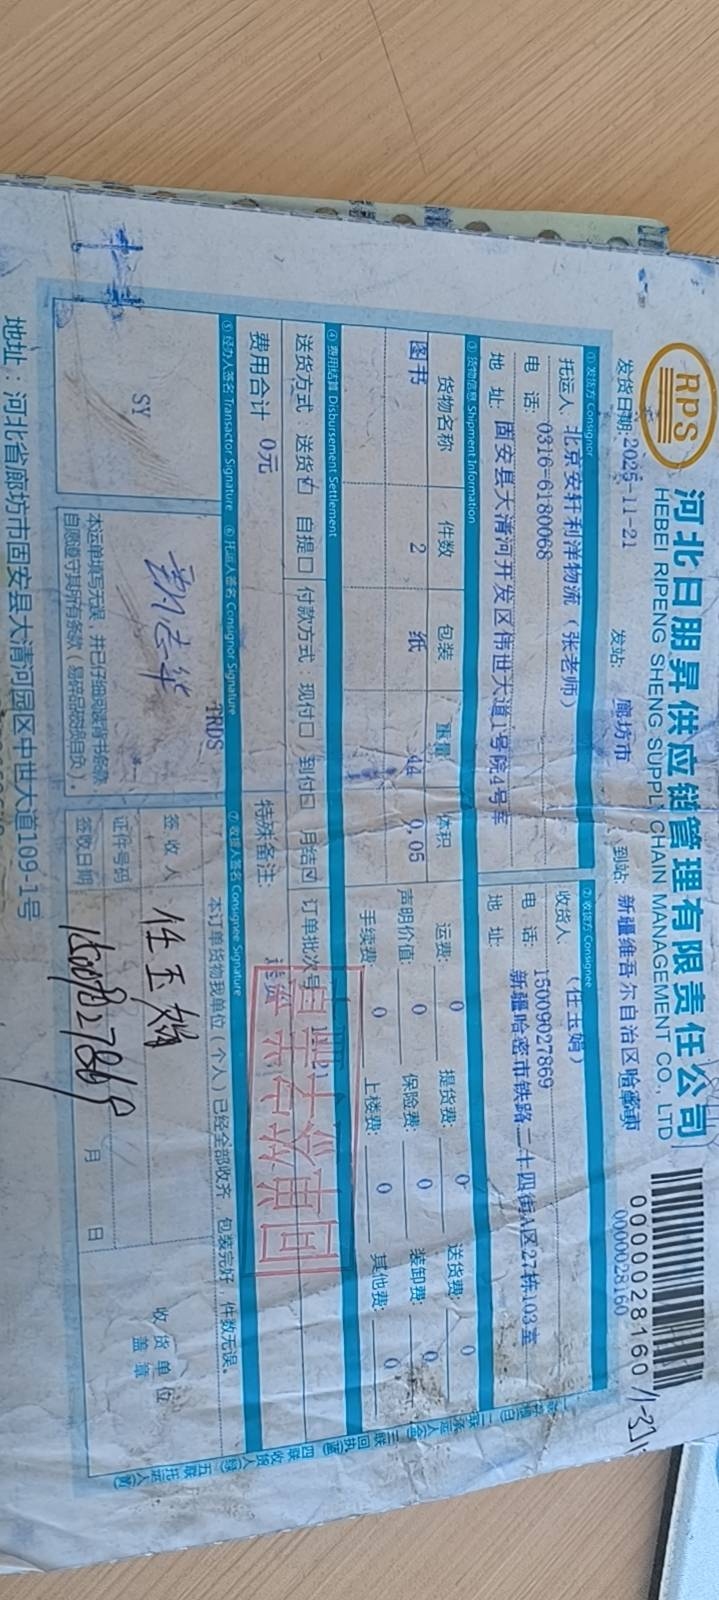 RPS
河北日朋昇供应链管理有限责任公司
HEBEI RIPENG SHENG SUPPLY CHAIN MANAGEMENT CO., LTD
0000028160
0000028160
发货日期:2025-11-21 发站: 廊坊市 到站: 新疆维吾尔自治区哈密市
①发货方 Consignor ②收货方 Consignee
托运人 北京安轩利洋物流（张老师） 收货人:（任玉娟）
电 话: 0316-6180068 电 话: 15009027869
地 址: 固安县大清河开发区伟世大道1号院4号库 地 址: 新疆哈密市铁路二十四街A区27栋103室
③货物信息 Shipment Information
货物名称 件数 包装 重量 体积 运费: 0 提货费: 0 送货费: 0
图书 2 纸 44 0.05 声明价值: 0 保险费: 0 装卸费: 0
手续费: 0 上楼费: 0 其他费: 0
④费用结算 Disbursement Settlement
送货方式：送货☑ 自提☐ 付款方式：现付☐ 到付☐ 月结☑ 订单批次号
费用合计 0元 特殊备注: 送货
回单签字盖章
⑤经办人签名 Transactor Signature ⑥托运人签名 Consignor Signature ⑦收货人签名 Consignee Signature
TRDS
SY
本订单货物我单位（个人）已经全部收齐，包装完好，件数无误。
签 收 人 任玉娟
证件号码
签收日期 15009027869 月 日
收货单位
盖 章
本运单填写无误，并已仔细阅读背书条款，
自愿遵守其所有条款（易碎品破损自负）。
地址：河北省廊坊市固安县大清河园区中世大道109-1号